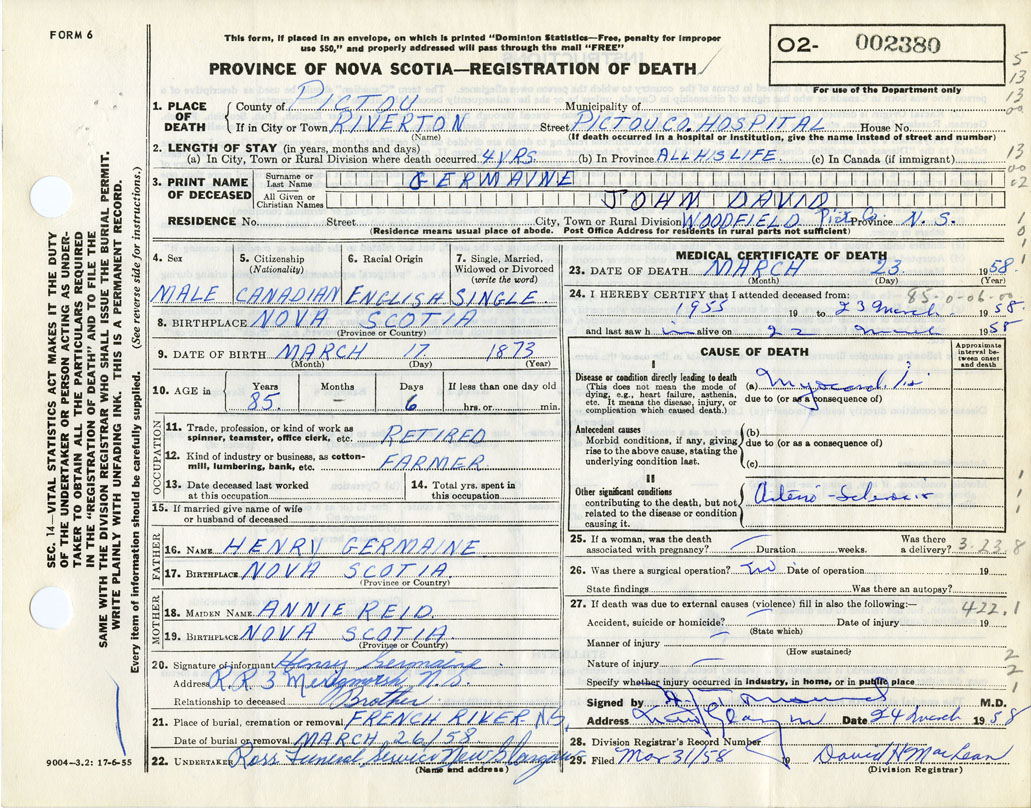 FORM 6
This form, if placed in an envelope, on which is printed "Dominion Statistics—Free, penalty for improper
use $50," and properly addressed will pass through the mail "FREE"
PROVINCE OF NOVA SCOTIA—REGISTRATION OF DEATH
02- 002380
For use of the Department only
1. PLACE OF DEATH
County of PICTOU Municipality of
If in City or Town RIVERTON Street PICTOU CO. HOSPITAL House No.
(Name) (If death occurred in a hospital or institution, give the name instead of street and number)
2. LENGTH OF STAY (in years, months and days)
(a) In City, Town or Rural Division where death occurred 4 YRS. (b) In Province ALL HIS LIFE. (c) In Canada (if immigrant)
3. PRINT NAME OF DECEASED
Surname or Last Name GERMAINE
All Given or Christian Names JOHN DAVID
RESIDENCE No. Street City, Town or Rural Division WOODFIELD Pict. Co. Province N. S.
(Residence means usual place of abode. Post Office Address for residents in rural parts not sufficient)
4. Sex 5. Citizenship (Nationality) 6. Racial Origin 7. Single, Married, Widowed or Divorced (write the word)
MALE CANADIAN ENGLISH SINGLE
8. BIRTHPLACE NOVA SCOTIA
(Province or Country)
9. DATE OF BIRTH MARCH 17. 1873
(Month) (Day) (Year)
10. AGE in Years Months Days If less than one day old
85. — 6 hrs. or min.
OCCUPATION
11. Trade, profession, or kind of work as
spinner, teamster, office clerk, etc. RETIRED
12. Kind of industry or business, as cotton-
mill, lumbering, bank, etc. FARMER
13. Date deceased last worked
at this occupation
14. Total yrs. spent in
this occupation
15. If married give name of wife
or husband of deceased
FATHER
16. NAME HENRY GERMAINE
17. BIRTHPLACE NOVA SCOTIA
(Province or Country)
MOTHER
18. MAIDEN NAME ANNIE REID.
19. BIRTHPLACE NOVA SCOTIA.
(Province or Country)
20. Signature of informant Henry Germaine.
Address R.R. 3 Merigomish N.S.
Relationship to deceased Brother
21. Place of burial, cremation or removal FRENCH RIVER N.S.
Date of burial or removal MARCH 26/58
22. UNDERTAKER Ross Funeral Service New Glasgow
(Name and address)
MEDICAL CERTIFICATE OF DEATH
23. DATE OF DEATH MARCH 23 1958
(Month) (Day) (Year)
85-0-06-00
24. I HEREBY CERTIFY that I attended deceased from:
1955 19 to 23 March 1958
and last saw h im alive on 22 March 1958
CAUSE OF DEATH
Approximate interval between onset and death
I
Disease or condition directly leading to death
(This does not mean the mode of
dying, e.g., heart failure, asthenia,
etc. It means the disease, injury, or
complication which caused death.)
(a) Myocarditis
due to (or as a consequence of)
Antecedent causes
Morbid conditions, if any, giving
rise to the above cause, stating the
underlying condition last.
(b)
due to (or as a consequence of)
(c)
II
Other significant conditions
contributing to the death, but not
related to the disease or condition
causing it.
Arterio-Sclerosis
25. If a woman, was the death
associated with pregnancy? — Duration weeks. Was there
a delivery? 3-23-8
26. Was there a surgical operation? no Date of operation 19
State findings Was there an autopsy?
27. If death was due to external causes (violence) fill in also the following:—
422.1
Accident, suicide or homicide? Date of injury 19
(State which)
Manner of injury
(How sustained)
Nature of injury
Specify whether injury occurred in industry, in home, or in public place
Signed by M.D.
Address New Glasgow Date 24 March 1958
28. Division Registrar's Record Number
29. Filed Mar 31/58 19 David H MacLean
(Division Registrar)
SEC. 14—VITAL STATISTICS ACT MAKES IT THE DUTY
OF THE UNDERTAKER OR PERSON ACTING AS UNDER-
TAKER TO OBTAIN ALL THE PARTICULARS REQUIRED
IN THE "REGISTRATION OF DEATH" AND TO FILE THE
SAME WITH THE DIVISION REGISTRAR WHO SHALL ISSUE THE BURIAL PERMIT.
WRITE PLAINLY WITH UNFADING INK. THIS IS A PERMANENT RECORD.
Every item of information should be carefully supplied. (See reverse side for instructions.)
9004—3.2: 17-6-55
5
13
13
00
13
00
02
1
0
1
1
1
1
2
2
1